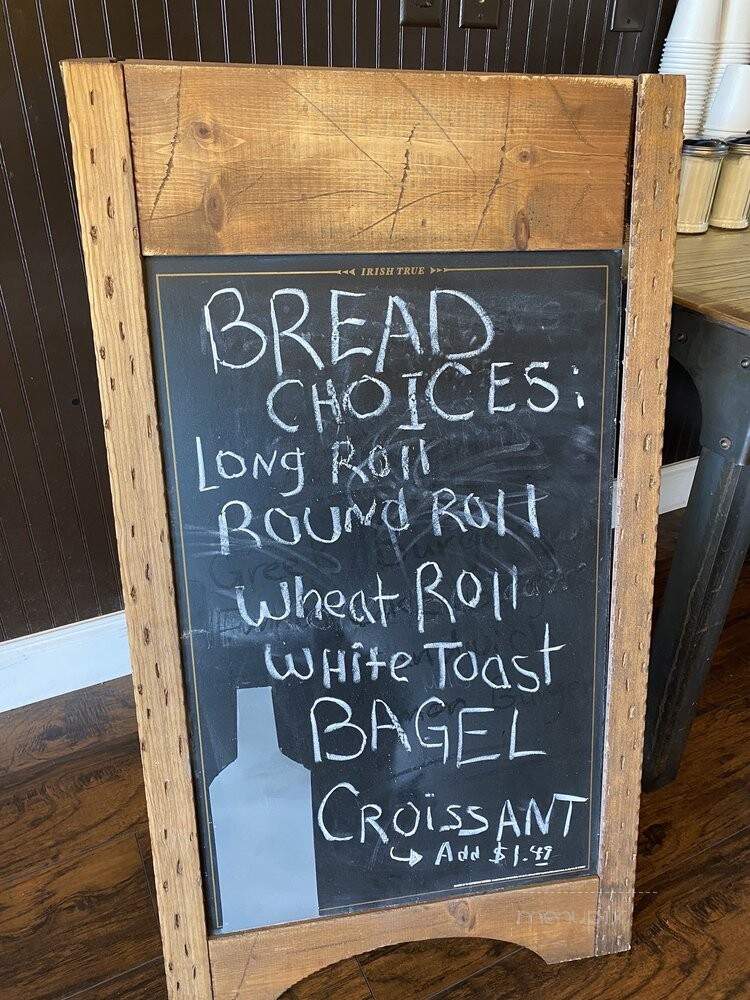 IRISH TRUE
BREAD
CHOICES:
Long Roll
ROUNd ROll
Wheat Roll
WHite Toast
BAGEL
CROiSSANT
↳ Add $1.49
menupix